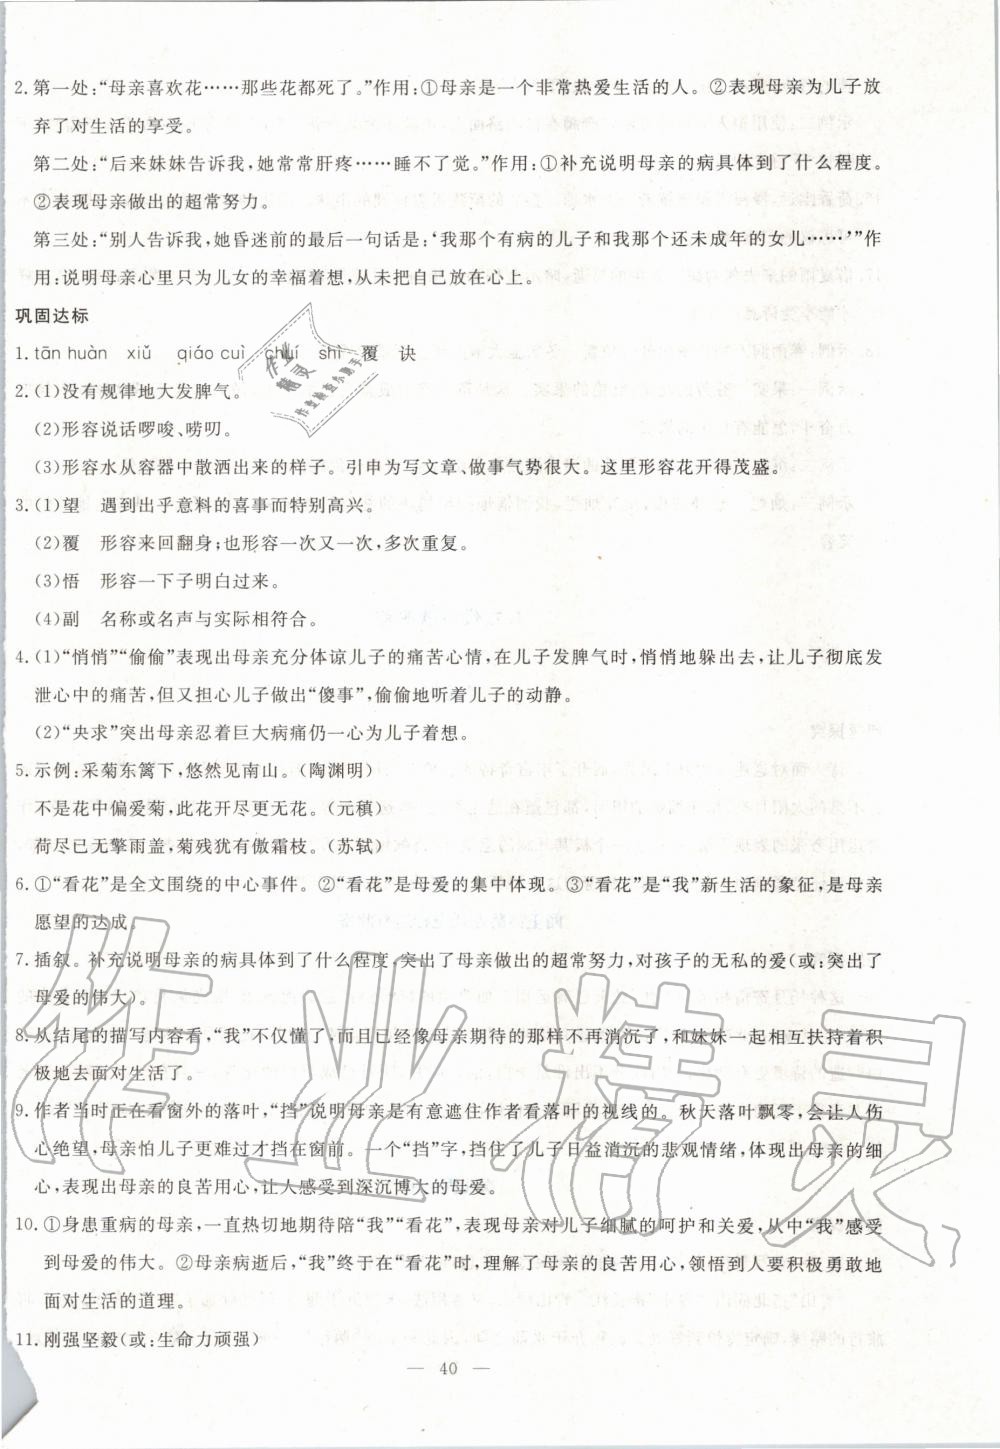 2. 第一处:“母亲喜欢花……那些花都死了。”作用:①母亲是一个非常热爱生活的人。②表现母亲为儿子放
弃了对生活的享受。
第二处:“后来妹妹告诉我,她常常肝疼……睡不了觉。”作用:①补充说明母亲的病具体到了什么程度。
②表现母亲做出的超常努力。
第三处:“别人告诉我,她昏迷前的最后一句话是:‘我那个有病的儿子和我那个还未成年的女儿……’”作
用:说明母亲心里只为儿女的幸福着想,从未把自己放在心上。
巩固达标
1. tān huàn xiǔ qiáo cuì chuí shì 覆 诀
2. (1)没有规律地大发脾气。
(2)形容说话啰唆、唠叨。
(3)形容水从容器中散洒出来的样子。引申为写文章、做事气势很大。这里形容花开得茂盛。
3. (1)望 遇到出乎意料的喜事而特别高兴。
(2)覆 形容来回翻身;也形容一次又一次,多次重复。
(3)悟 形容一下子明白过来。
(4)副 名称或名声与实际相符合。
4. (1)“悄悄”“偷偷”表现出母亲充分体谅儿子的痛苦心情,在儿子发脾气时,悄悄地躲出去,让儿子彻底发
泄心中的痛苦,但又担心儿子做出“傻事”,偷偷地听着儿子的动静。
(2)“央求”突出母亲忍着巨大病痛仍一心为儿子着想。
5. 示例:采菊东篱下,悠然见南山。(陶渊明)
不是花中偏爱菊,此花开尽更无花。(元稹)
荷尽已无擎雨盖,菊残犹有傲霜枝。(苏轼)
6. ①“看花”是全文围绕的中心事件。②“看花”是母爱的集中体现。③“看花”是“我”新生活的象征,是母亲
愿望的达成。
7. 插叙。补充说明母亲的病具体到了什么程度,突出了母亲做出的超常努力,对孩子的无私的爱(或:突出了
母爱的伟大)。
8. 从结尾的描写内容看,“我”不仅懂了,而且已经像母亲期待的那样不再消沉了,和妹妹一起相互扶持着积
极地去面对生活了。
9. 作者当时正在看窗外的落叶,“挡”说明母亲是有意遮住作者看落叶的视线的。秋天落叶飘零,会让人伤
心绝望,母亲怕儿子更难过才挡在窗前。一个“挡”字,挡住了儿子日益消沉的悲观情绪,体现出母亲的细
心,表现出母亲的良苦用心,让人感受到深沉博大的母爱。
10. ①身患重病的母亲,一直热切地期待陪“我”“看花”,表现母亲对儿子细腻的呵护和关爱,从中“我”感受
到母爱的伟大。②母亲病逝后,“我”在“看花”时,理解了母亲的良苦用心,领悟到人要积极勇敢地
面对生活的道理。
11. 刚强坚毅(或:生命力顽强)
— 40 —
作业精灵